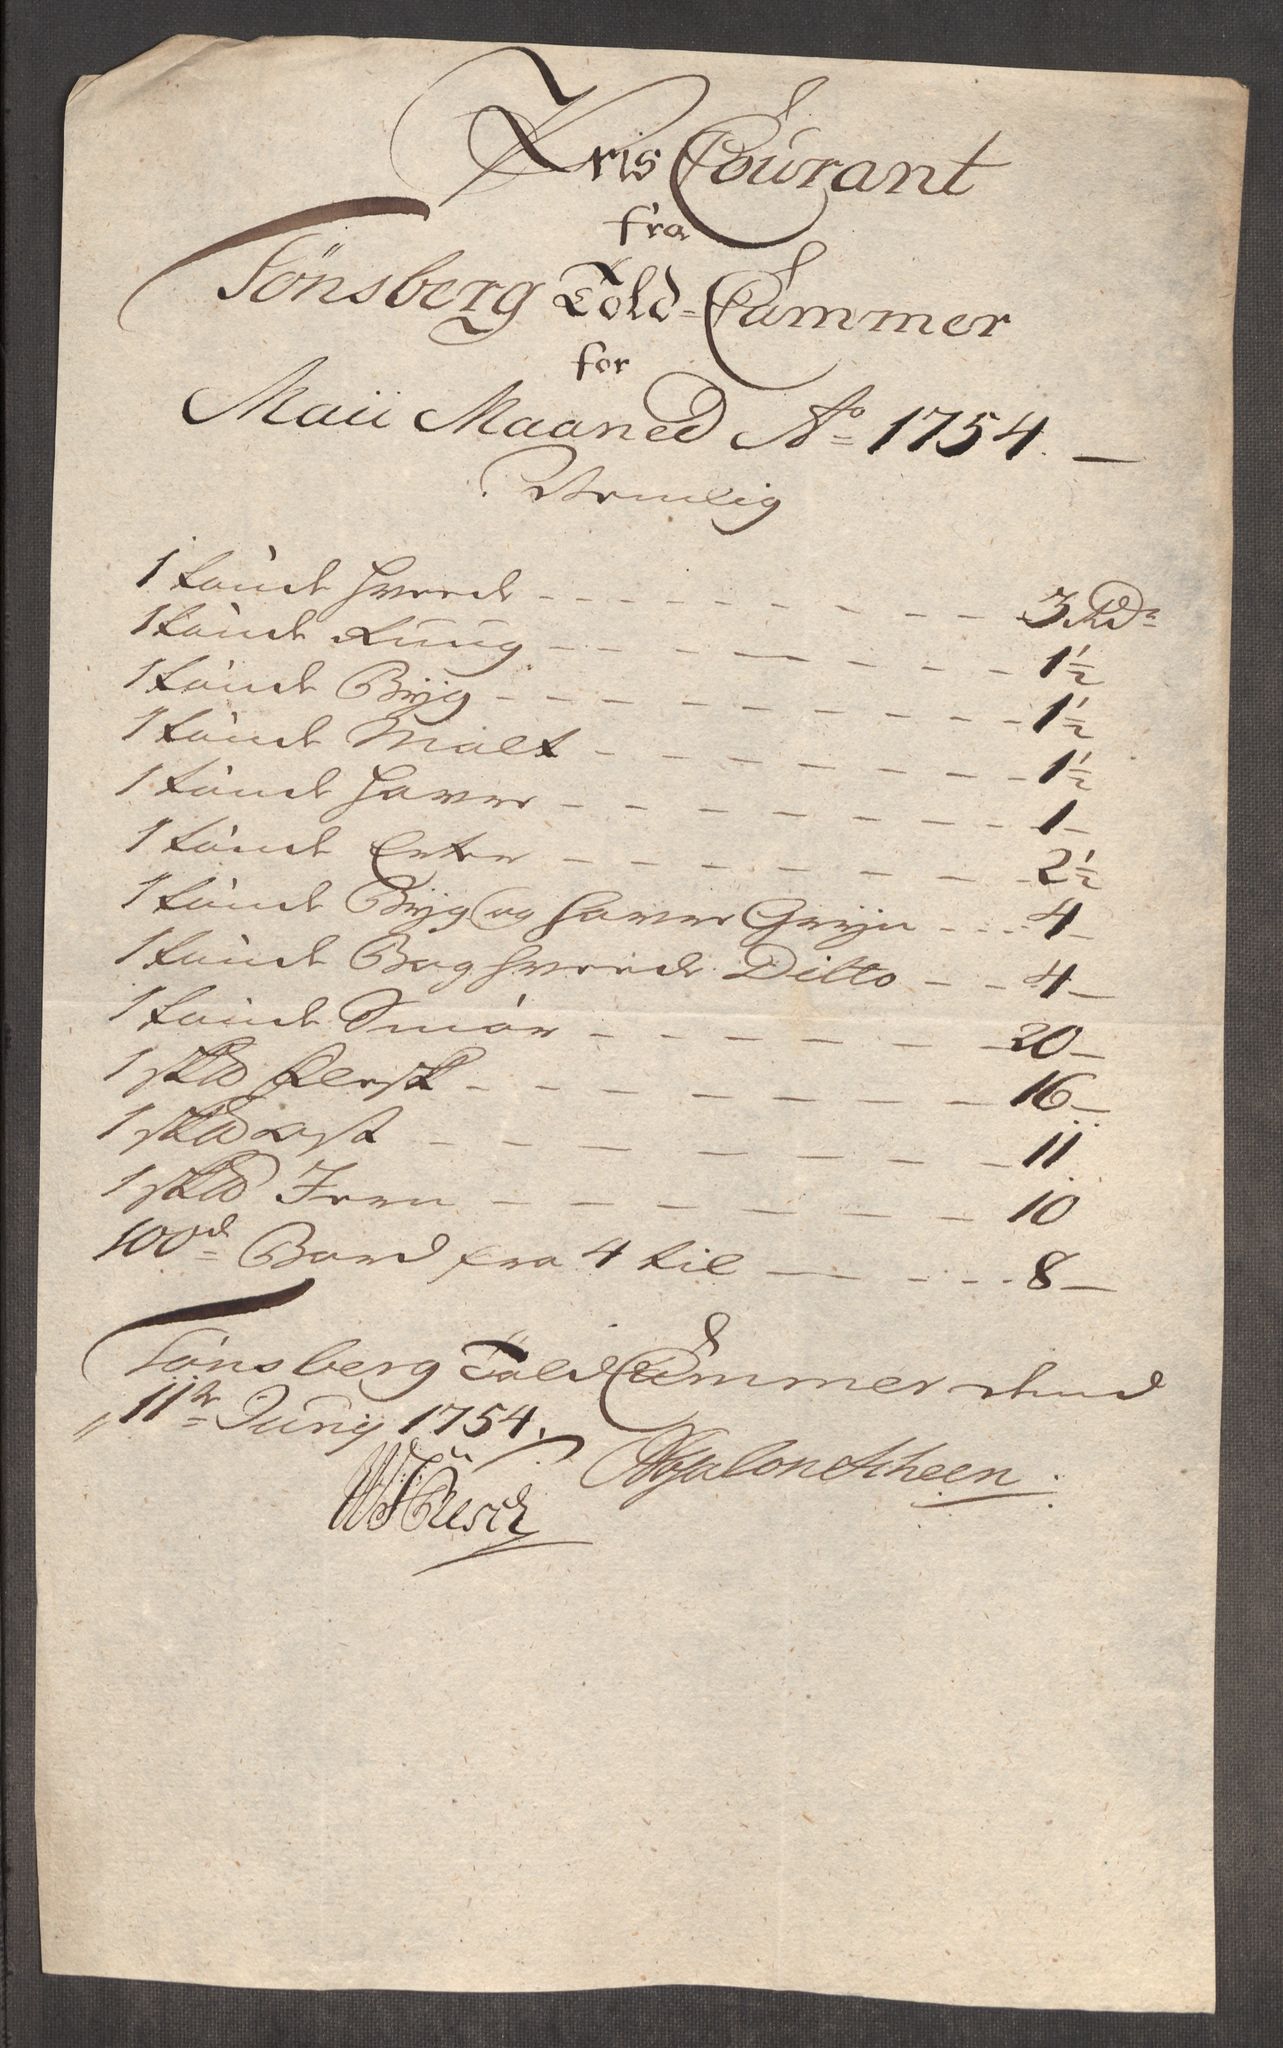 Pris Courant
fra
Tønsberg Told-Cammer
for
Maii Maaned Ao 1754. —
Nemlig
1 tønde Hvede - - - - - - - - 3 Rdr
1 tønde Rug - - - - - - - - 1½
1 tønde Byg - - - - - - - - 1½
1 tønde Malt - - - - - - - - 1½
1 tønde Havre - - - - - - - - 1 -
1 tønde Erter - - - - - - - - 2½
1 tønde Byg og Havre Gryn - - - - 4 -
1 tønde Boghvede Ditto - - - 4 -
1 tønde Smør - - - - - - - 20 -
1 sk℔ Flesk - - - - - - - 16 -
1 sk℔ ost - - - - - - - 11
1 sk℔ Jern - - - - - - - 10
100d Bord fra 4 til - - - - - 8 -
Tønsberg Told Cammer dend
11te Juny 1754.
Absalon Scheen